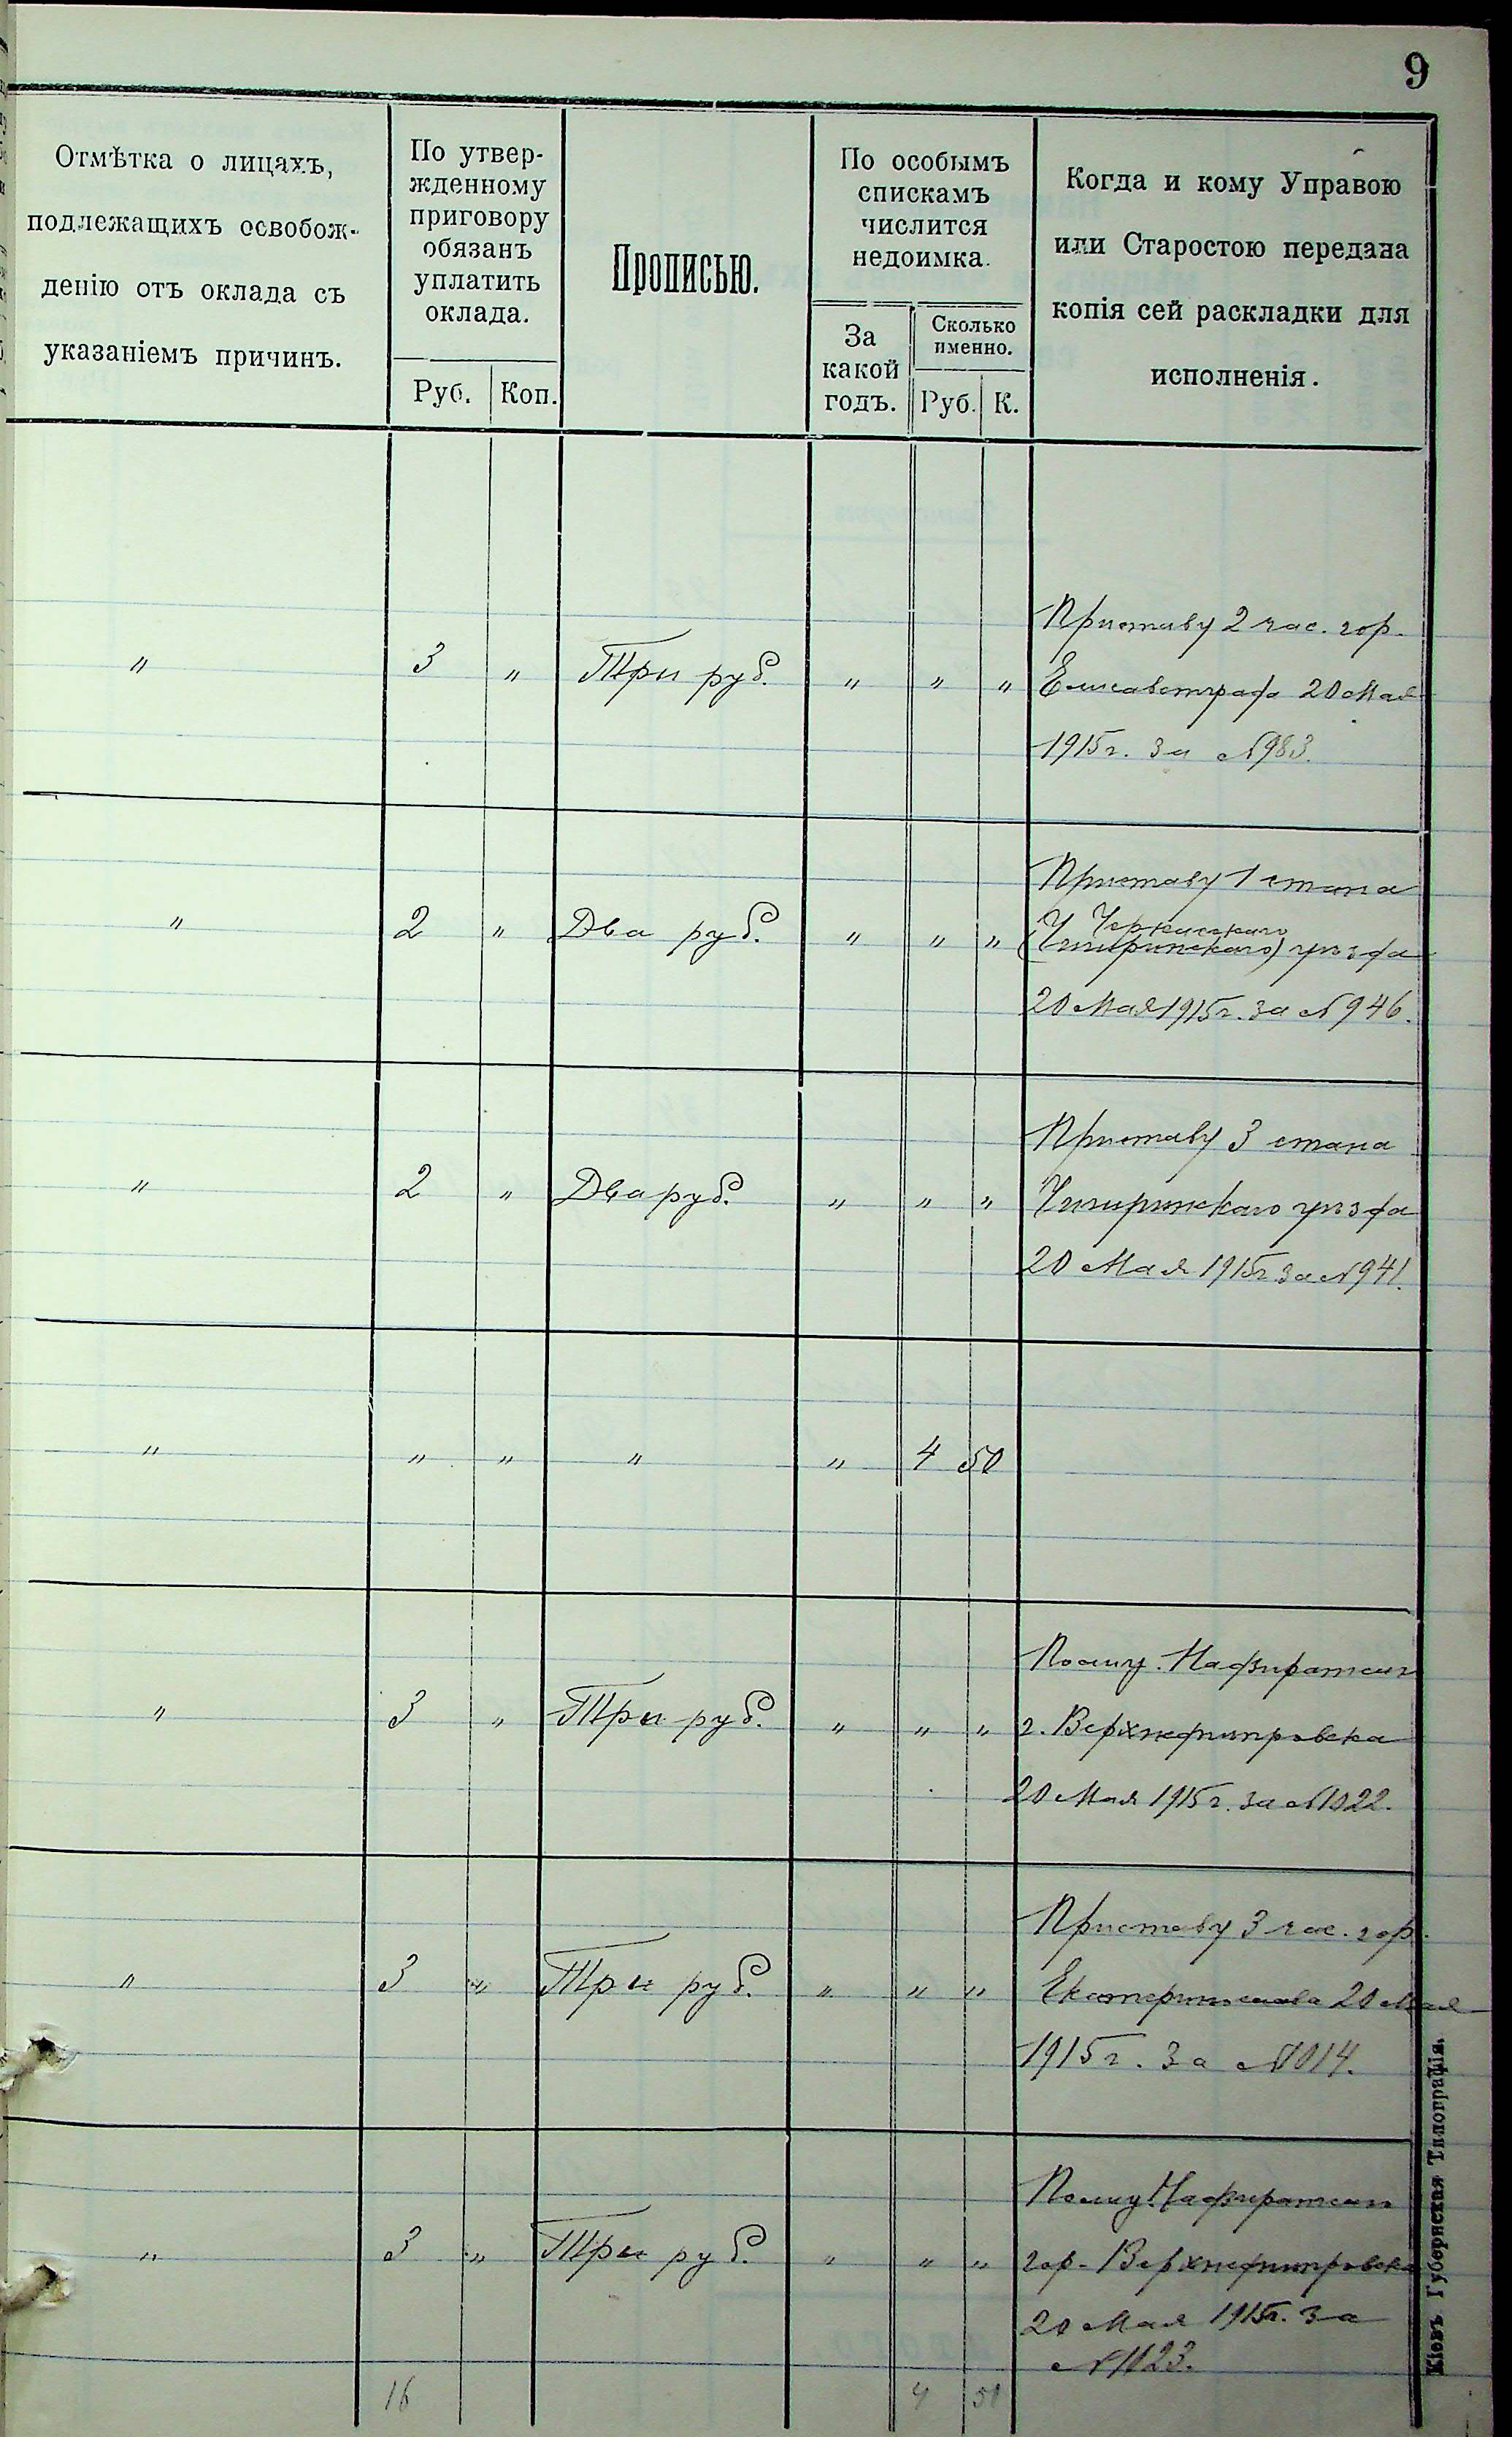 9
Отмѣтка о лицахъ,
подлежащихъ освобож-
денію отъ оклада съ
указаніемъ причинъ.
По утвер-
жденному
приговору
обязанъ
уплатить
оклада.
Руб. Коп.
Прописью.
По особымъ
спискамъ
числится
недоимка.
За
какой
годъ.
Сколько
именно.
Руб. К.
Когда и кому Управою
или Старостою передана
копія сей раскладки для
исполненія.
Приставу 2 час. гор.
" 3 " Три руб. " " " Елисаветграда 20 Мая
1915 г. за №983.
Приставу 1 стана
Черкасскаго
" 2 " Два руб. " " " (Чигиринскаго) уѣзда
20 Мая 1915 г. за №946.
Приставу 3 стана
" 2 " Два руб. " " " Чигиринскаго уѣзда
20 Мая 1915 г. за №941.
" " " " " 4 50
Полиц. Надзирателю
" 3 " Три руб. " " " г. Верхнеднѣпровска
20 Мая 1915 г. за №1022.
Приставу 3 час. гор.
" 3 " Три руб. " " " Екатеринослава 20 Мая
1915 г. за №1014.
Полиц. Надзирателю
" 3 " Три руб. " " " гор. Верхнеднѣпровска
20 Мая 1915 г. за
№1123.
16 4 50
Кіевъ. Губернская Типографія.